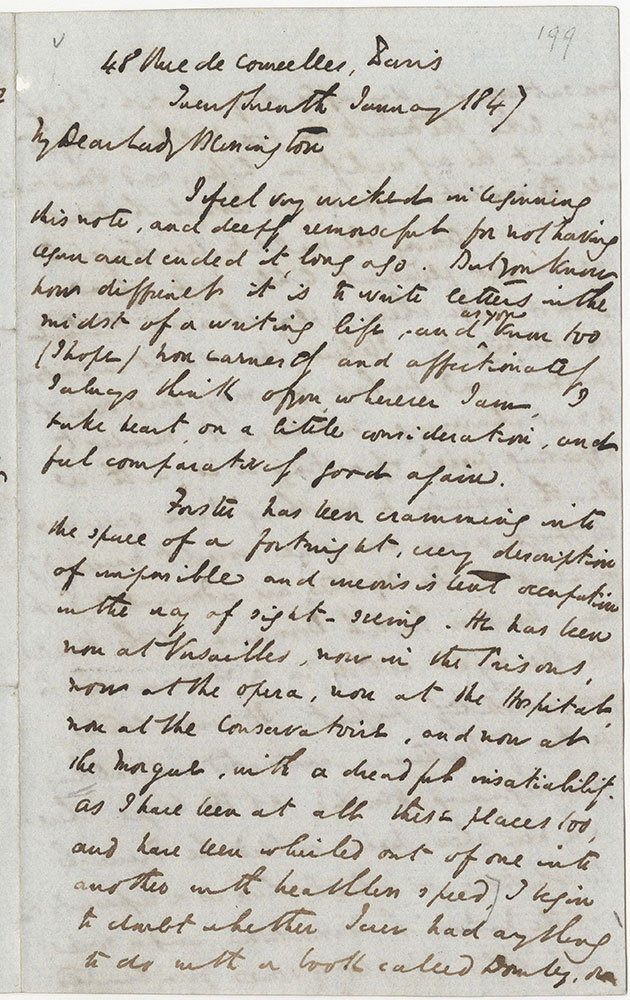 199
48 Rue de Courcelles, Paris
Twenty Seventh January 1847
My Dear Lady Blessington
I feel very wicked in beginning
this note, and deeply remorseful for not having
begun and ended it long ago. But you know
how difficult it is to write letters in the
midst of a writing life, and as you know too
(I hope) how earnestly and affectionately
I always think of you, wherever I am, I
take heart, on a little consideration, and
feel comparatively good again.
Forster has been cramming into
the space of a fortnight, every description
of impossible and inconsistent occupation
in the way of sight-seeing. He has been
now at Versailles, now in the Prisons,
now at the opera, now at the Hospitals,
now at the Conservatoire, and now at
the Morgue, with a dreadful insatiability.
As I have been at all these places too,
and have been whirled out of one into
another with breathless speed, I begin
to doubt whether I ever had anything
to do with a book called Dombey, or